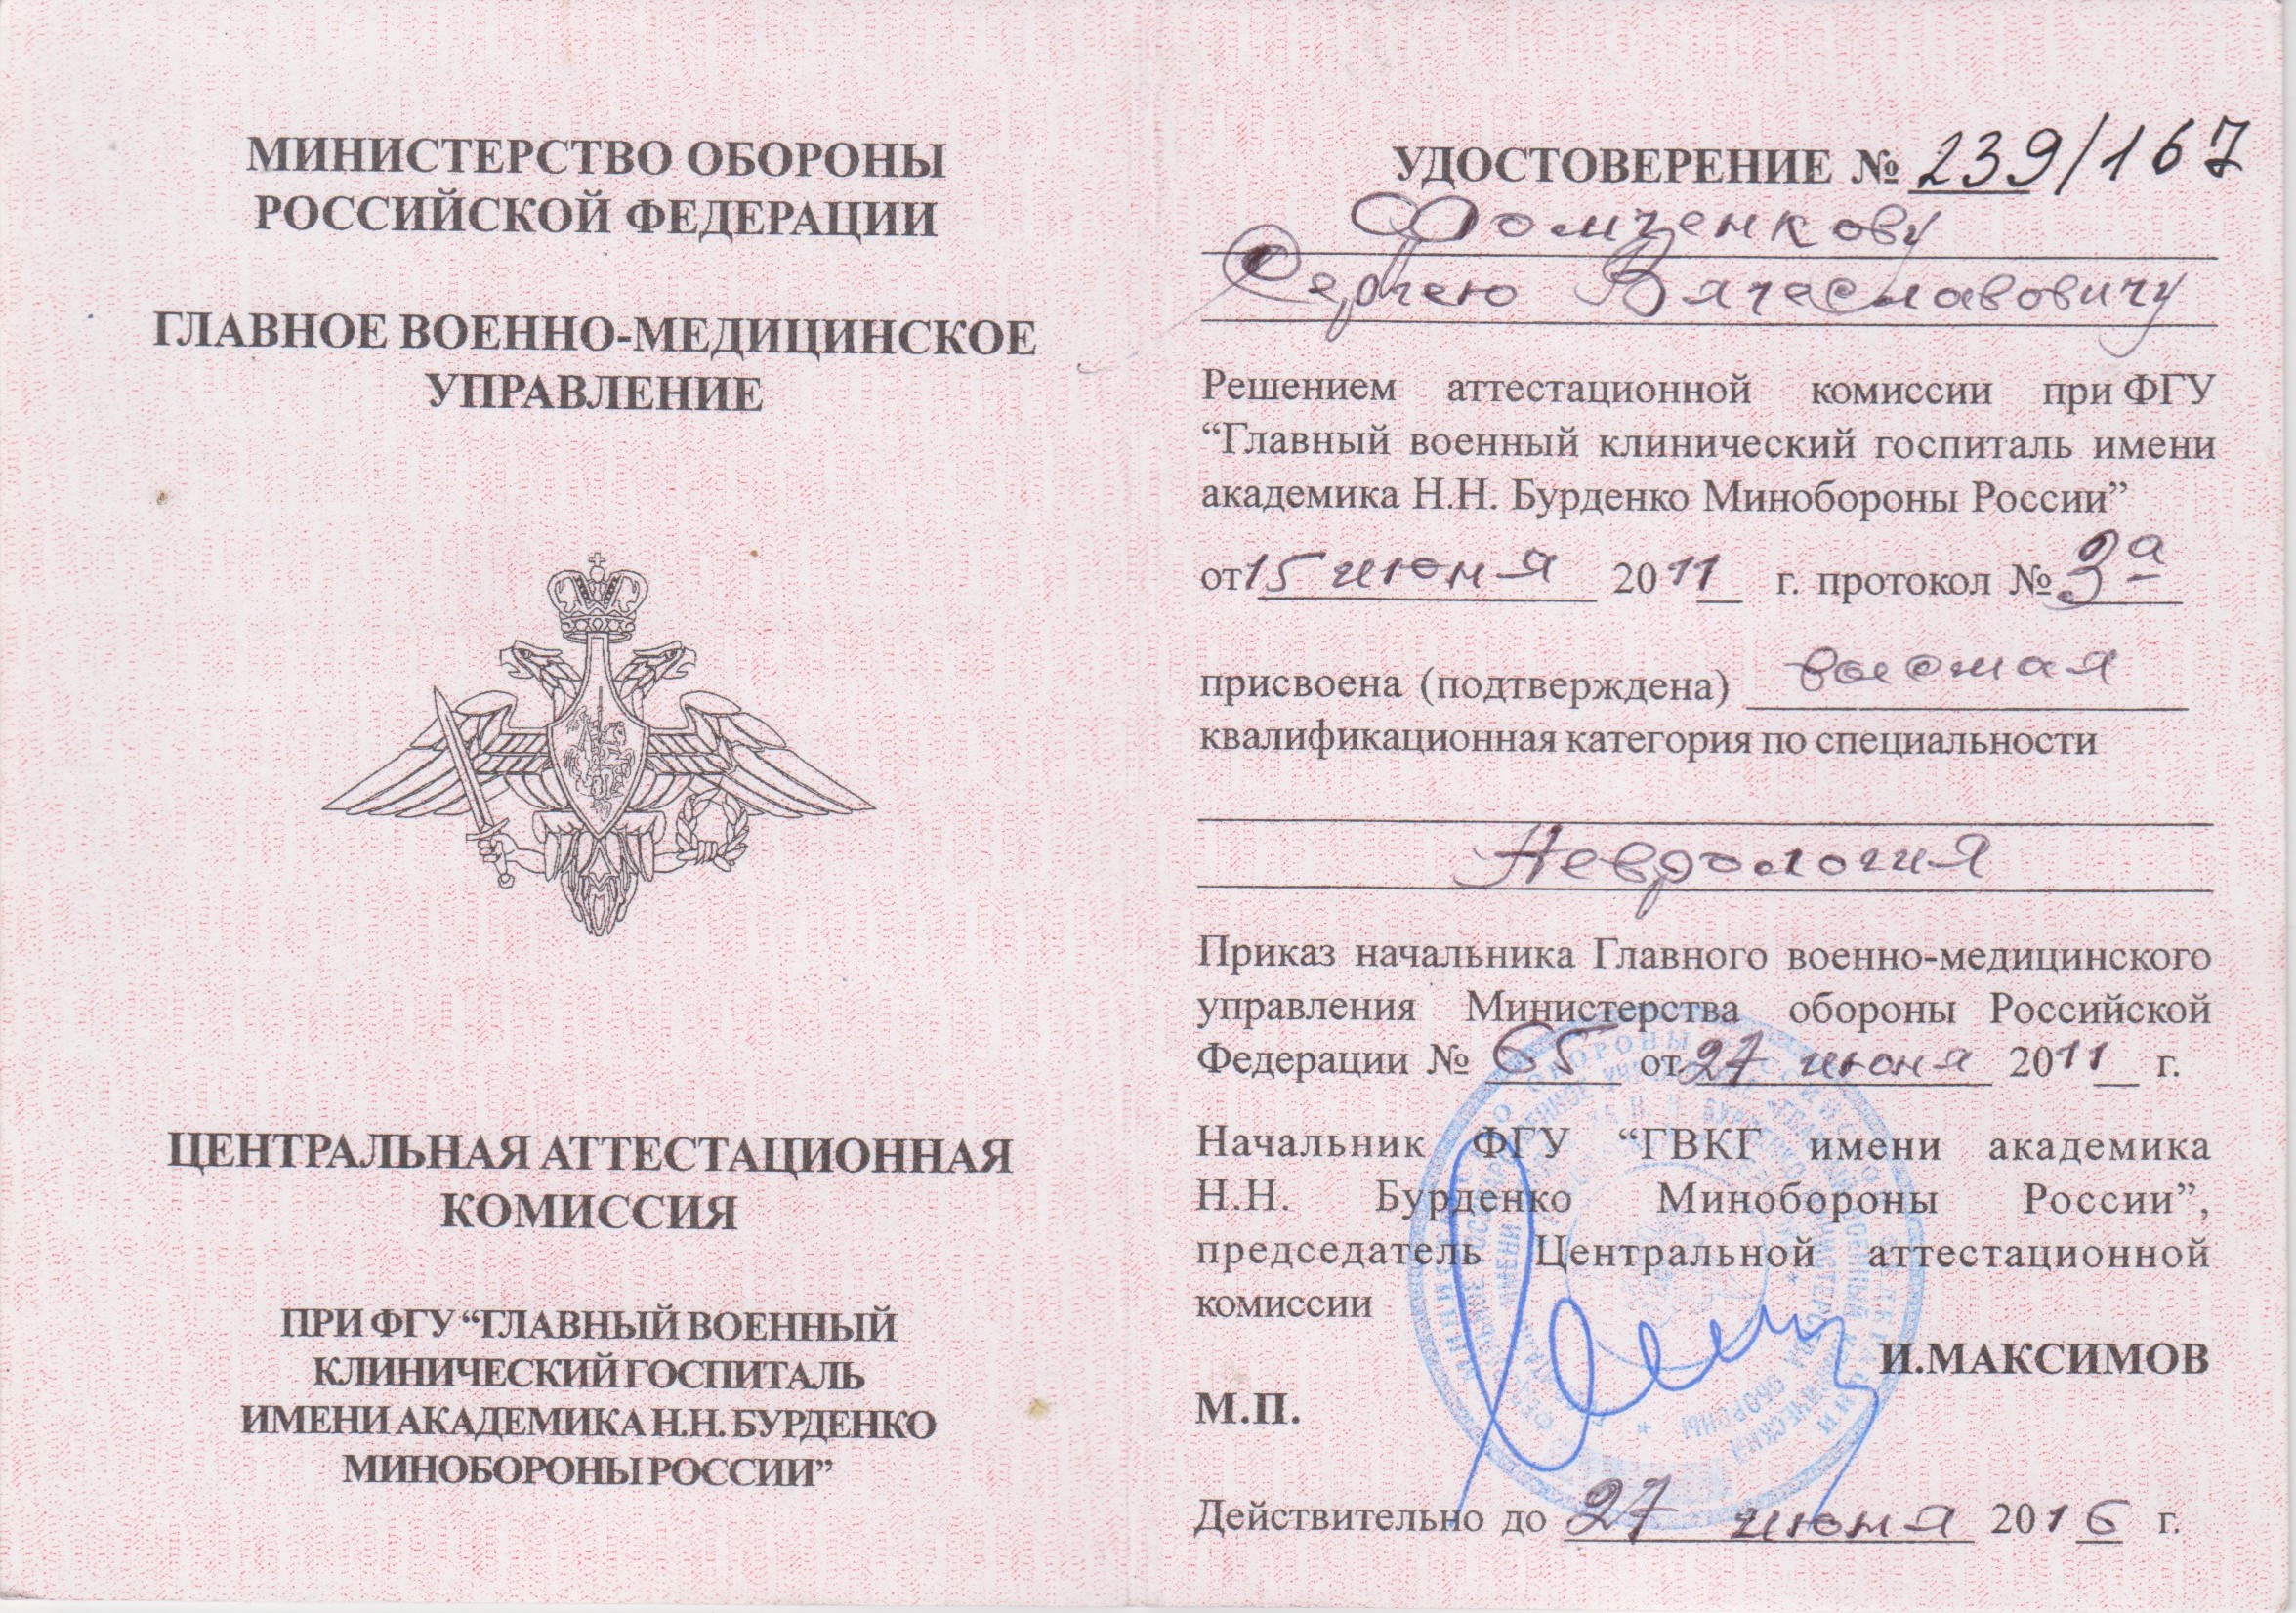 МИНИСТЕРСТВО ОБОРОНЫ
РОССИЙСКОЙ ФЕДЕРАЦИИ
ГЛАВНОЕ ВОЕННО-МЕДИЦИНСКОЕ
УПРАВЛЕНИЕ
ЦЕНТРАЛЬНАЯ АТТЕСТАЦИОННАЯ
КОМИССИЯ
ПРИ ФГУ “ГЛАВНЫЙ ВОЕННЫЙ
КЛИНИЧЕСКИЙ ГОСПИТАЛЬ
ИМЕНИ АКАДЕМИКА Н.Н. БУРДЕНКО
МИНОБОРОНЫ РОССИИ”
УДОСТОВЕРЕНИЕ № 239/167
Фомченкову
Сергею Вячеславовичу
Решением аттестационной комиссии при ФГУ
“Главный военный клинический госпиталь имени
академика Н.Н. Бурденко Минобороны России”
от 15 июня 2011 г. протокол № 3а
присвоена (подтверждена) высшая
квалификационная категория по специальности
Неврология
Приказ начальника Главного военно-медицинского
управления Министерства обороны Российской
Федерации № 65 от 27 июня 2011 г.
Начальник ФГУ “ГВКГ имени академика
Н.Н. Бурденко Минобороны России”,
председатель Центральной аттестационной
комиссии
И.МАКСИМОВ
М.П.
Действительно до 27 июня 2016 г.